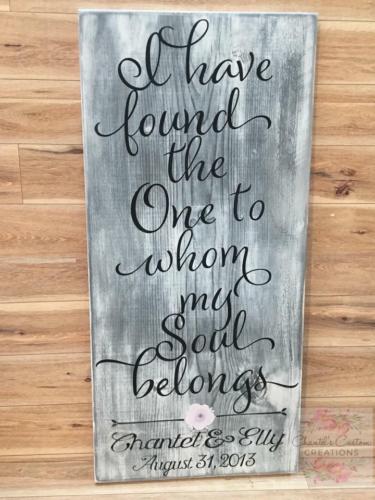 I have
found
the
One to
whom
my
Soul
belongs
Chantel & Elly
August 31, 2013
Chantel's Custom
CREATIONS